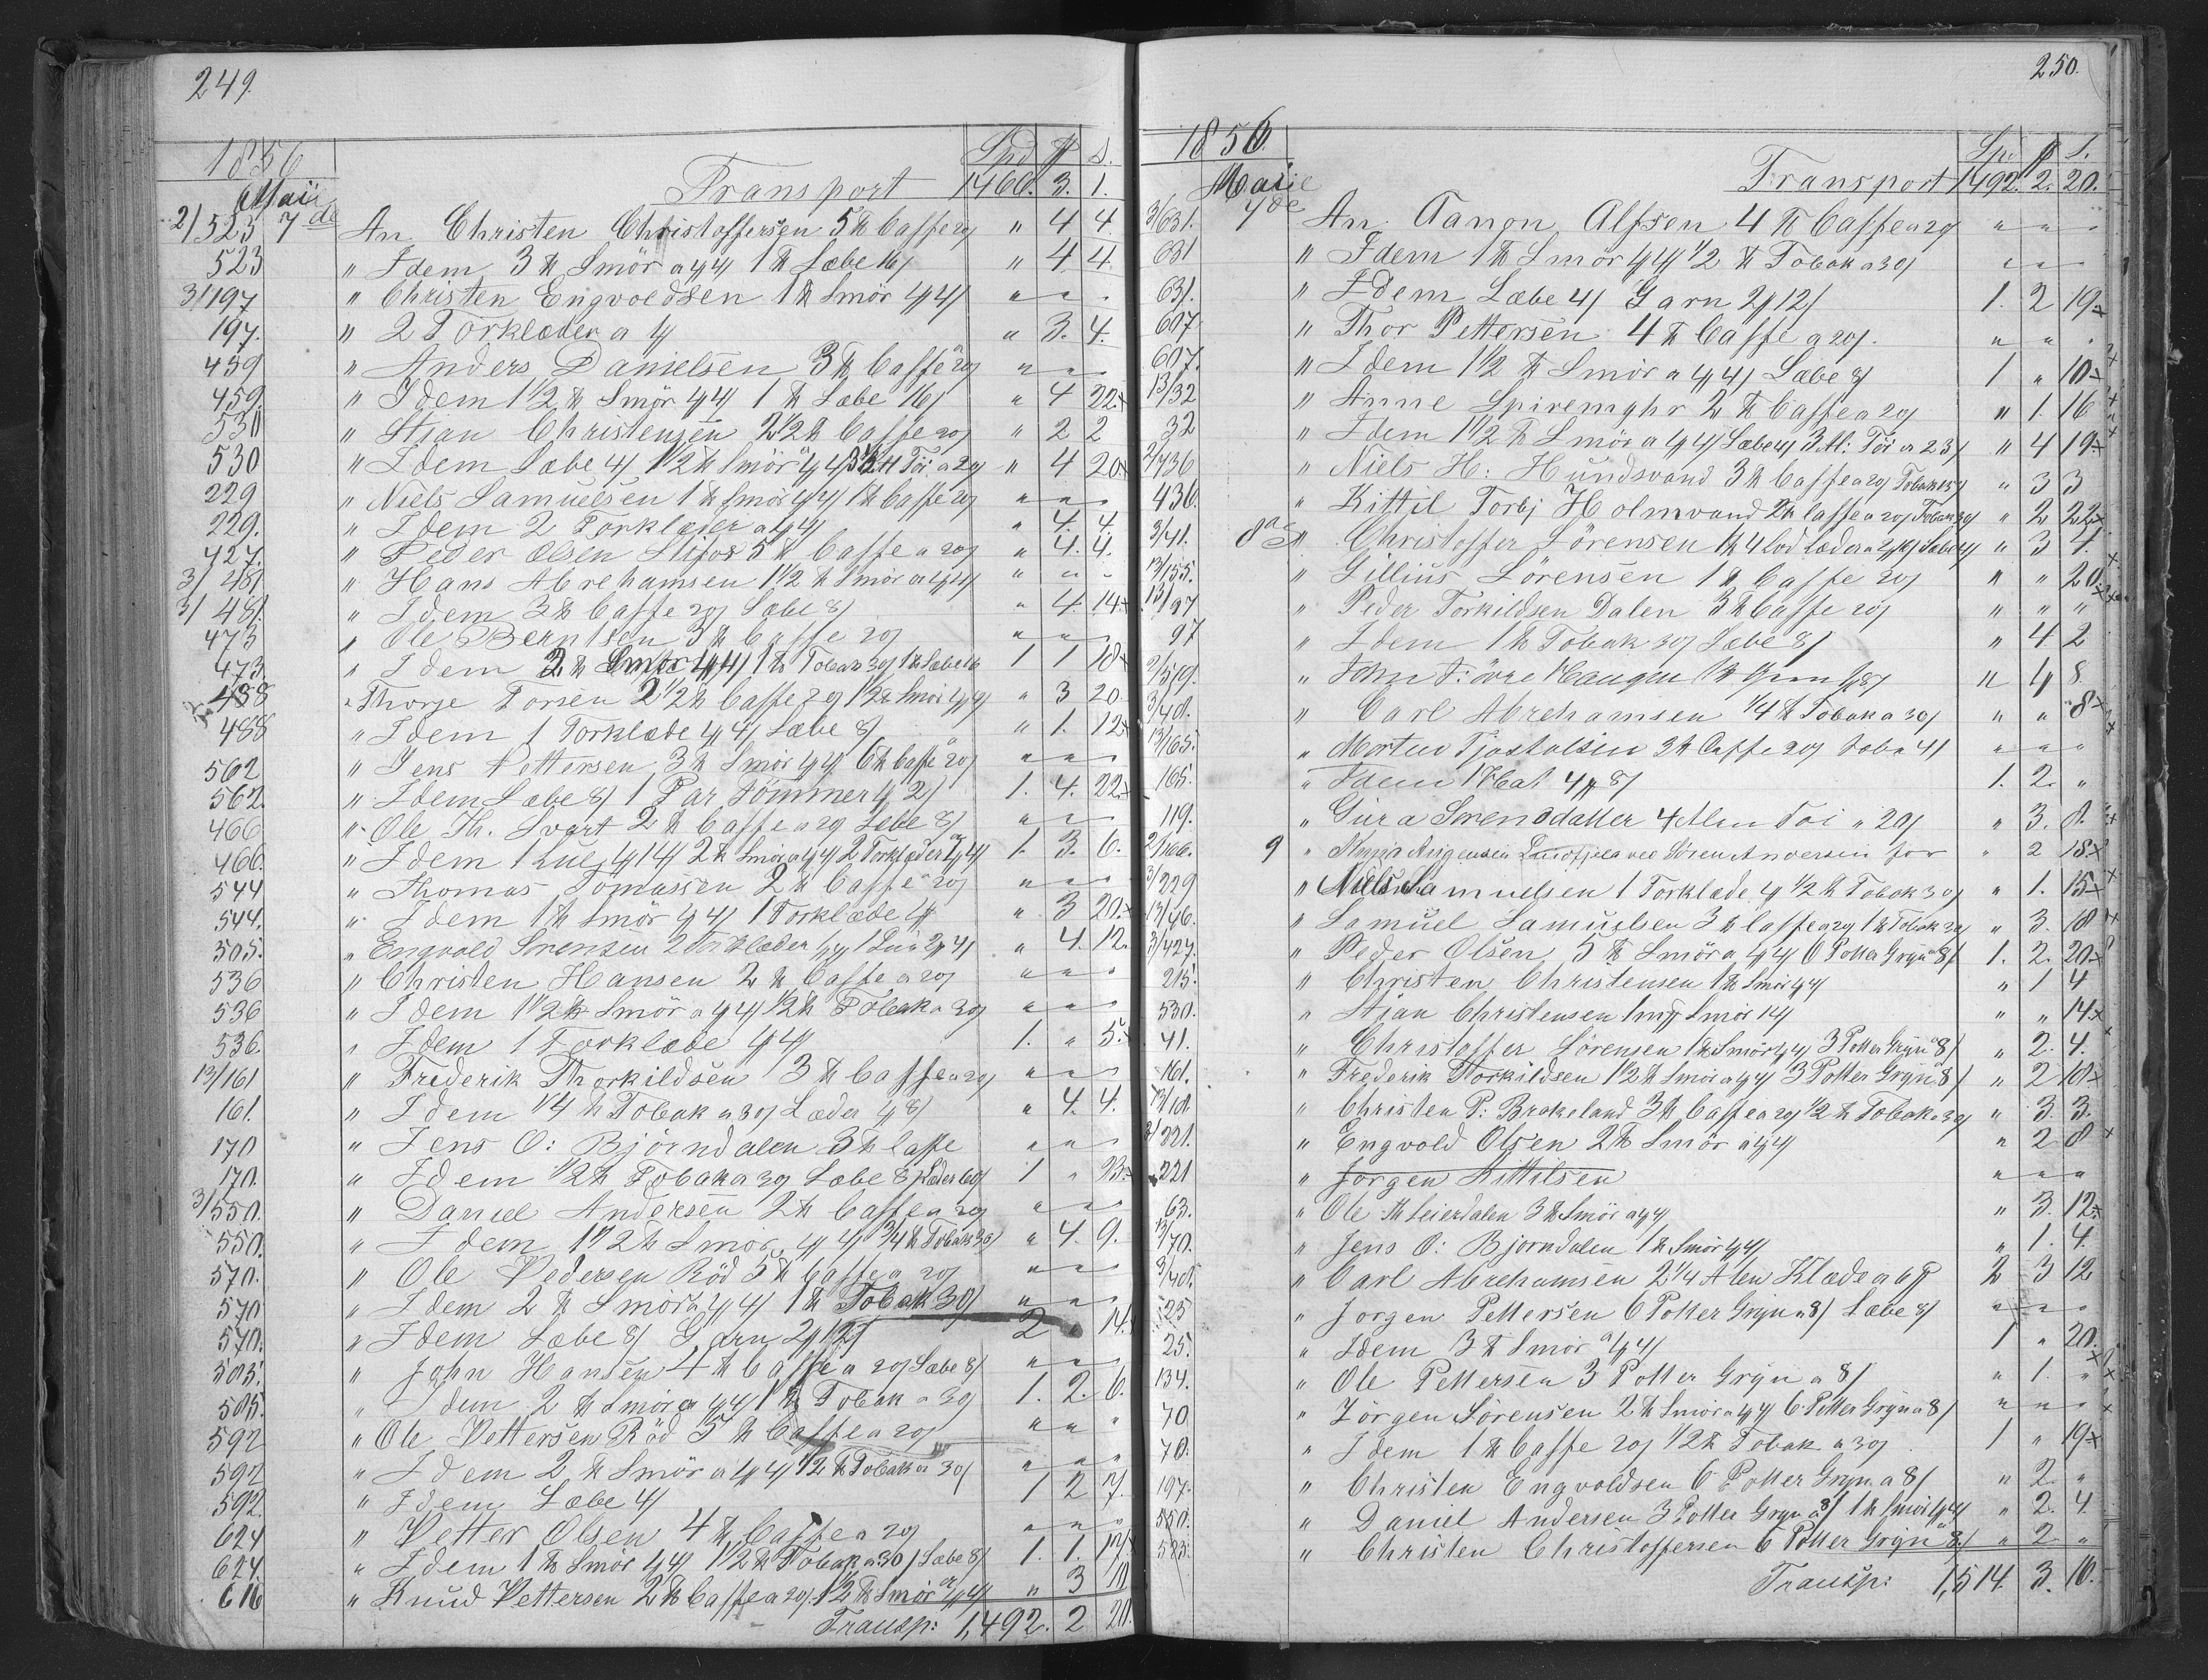 249.
1856
Spd ℔ s.
Maii
Transport 1460. 3. 1.
2/523 7de An Christen Christoffersen 5 ℔ Caffe 20/ " 4 4.
523 " Idem 3 ℔ Smör a 1/4/ 1 ℔ Sæbe 16/ " 4. 4.
3/197 " Christen Engvoldsen 1 ℔ Smör 1/4/ " " "
197. " 2 Torklæder a 1/ " 3. 4.
459 " Anders Danielsen 3 ℔ Caffe a 20/ " " "
459 " Idem 1 1/2 ℔ Smör 1/4/ 1 ℔ Sæbe 16/ " 4 22. x
530 " Stian Christensen 2 1/2 ℔ Caffe 20/ " 2 2
530 " Idem Sæbe 4/ 1 1/2 ℔ Smör a 1/4/ Töi a 20/ " 4 20 x
229 " Niels Samuelsen 1 ℔ Smör 1/4/ 1 ℔ Caffe 20/ " " "
229. " Idem 2 Torklæder a 1/4/ " 4. 4.
427. " Peder Olsen 5 ℔ Caffe a 20/ " 4. 4.
3/481 " Hans Abrehamsen 1 1/2 ℔ Smör a 1/4/ " " "
3/481. " Idem 3 ℔ Caffe 20/ Sæbe 8/ " 4. 14. x
473 " Ole Berntsen 3 ℔ Caffe 20/ " " "
473. " Idem 2 ℔ Smör 1/4/ 1 ℔ Tobak 30/ 1 ℔ Sæbe 16 1 1 18 x
488 " Thorge Torsen 2 1/2 ℔ Caffe 20/ 1 1/2 ℔ Smör 1/4/ " 3 20.
488 " Idem 1 Torklæde 1/4/ Sæbe 8/ " 1. 12 x
562 " Jens Pettersen 3 ℔ Smör 1/4/ 6 ℔ Caffe a 20/ " " "
562. " Idem Sæbe 8/ 1 Par Tömmer 1/2/ 1. 4. 22. x
466 " Ole Th. Svart 2 ℔ Caffe a 20/ Sæbe 8/ " " "
466. " Idem 1 1/14/ 2 ℔ Smör a 1/4/ 2 Torklæder a 1/4/ 1. 3. 6.
544 " Thomas Tomassen 2 ℔ Caffe a 20/ " " "
544. " Idem 1 ℔ Smör 1/4/ 1 Torklæde 1/ " 3 20. x
505. " Engvold Sörensen 2 Torklæder 1/4/ 1 2/4/ " 4. 12.
536 " Christen Hansen 2 ℔ Caffe a 20/ " " "
536 " Idem 1 1/2 ℔ Smör a 1/4/ 1/2 ℔ Tobak a 30/ " " "
536. " Idem 1 Torklæde 1/4/ 1. " 5. x
13/161 " Frederik Thorkildsen 3 ℔ Caffe a 20/ " " "
161. " Idem 1/4 ℔ Tobak a 30/ Læder 1/8/ " 4. 4.
170 " Jens O: Björndalen 3 ℔ Caffe " " "
170. " Idem 1/2 ℔ Tobak a 30/ Sæbe 8/ Læder 60/ 1 " 23. x
3/550. " Daniel Andersen 2 ℔ Caffe a 20/ " " "
550. " Idem 1 1/2 ℔ Smör 1/4/ 3/4 ℔ Tobak 30/ " 4. 9.
570. " Ole Pedersen Röd 5 ℔ Caffe a 20/ " " "
570 " Idem 2 ℔ Smör a 1/4/ 1 ℔ Tobak 30/ " " "
570. " Idem Sæbe 8/ Garn 2/12/ 2 " 14.
505. " John Hansen 4 ℔ Caffe a 20/ Sæbe 8/ " " "
505. " Idem 2 ℔ Smör a 1/4/ 1 ℔ Tobak a 30/ 1. 2. 6.
592 " Ole Pettersen Röd 5 ℔ Caffe a 20/ " " "
592 " Idem 2 ℔ Smör a 1/4/ 1/2 ℔ Tobak a 30/ " " "
592. " Idem Sæbe 4/ 1 2 7.
624 " Petter Olsen 4 ℔ Caffe a 20/ " " "
624. " Idem 1 ℔ Smör 1/4/ 1 1/2 ℔ Tobak a 30/ Sæbe 8/ 1. 1. 17 x
616 " Knud Pettersen 2 ℔ Caffe a 20/ 1 1/2 ℔ Smör a 1/4/ " 3 10
Transp: 1,492. 2 20.
250.
1856.
Sp. ℔ s.
Maie
Transport 1492. 2. 20.
3/631. 7de An Aanon Alfsen 4 ℔ Caffe a 20/ " " "
631 " Idem 1 ℔ Smör 1/4/ 1/2 ℔ Tobak a 30/ " " "
631. " Idem Sæbe 4/ Garn 2/12/ 1. 2 19 x
607 " Thor Pettersen 4 ℔ Caffe a 20/. " " "
607. " Idem 1 1/2 ℔ Smör a 1/4/ Sæbe 8/ 1 " 10 x
13/32 " Anne Spiremyhr 2 ℔ Caffe a 20/ " 1. 16
32 " Idem 1 1/2 ℔ Smör a 1/4/ Sæbe 4/ 3 Al: Töi a 23/ " 4 19 x
2/436 " Niels H: Hundsvand 3 ℔ Caffe a 20/ Tobak 15/ " 3 3
436. " Kittil Torbj Holmvand 2 ℔ Caffe a 20/ Tobak 30/ " 2 22 x
3/41. 8de " Christoffer Sörensen 1 ℔ 4 lod læder a 2/16/ Sæbe 4/ " 3 1.
13/155. " Gillius Sörensen 1 ℔ Caffe 20/ " " 20. x
13/97 " Peder Torkildsen Dalen 3 ℔ Caffe 20/ " " "
97 " Idem 1 ℔ Tobak 30/ Sæbe 8/ " 4. 2
2/519. " 4 8
3/401. " Carl Abrehamsen 1/4 ℔ Tobak a 30/ " " 8 x
13/165. " Morten Tjostolsen 3 ℔ Caffe 20/ Sæbe 4/ " " "
165. " Idem 1 Hat 4/8/ 1. 2. "
119. " Gura Sorensdatter 4 Alen Töi a 20/ " 3. 8. x
2/166. 9 " ved Sören Andersen for " 2 18. x
3/229 " Niels Samuelsen 1 Torklæde 1/ 1/2 ℔ Tobak 30/ " 1. 15 x
13/46. " Samuel Samuelsen 3 ℔ Caffe a 20/ 1 ℔ Tobak 30/ " 3. 18 x
3/427. " Peder Olsen 5 ℔ Smör a 1/4/ 6 Potter Gryn a 8/ 1. 2. 20. x
215. " Christen Christensen 1 ℔ Smör 1/4/ " 1 4
530. " Stian Christensen 1/2 ℔ Smör 14/ " " 14 x
41. " Christoffer Sörensen 1 ℔ Smör 1/4/ 3 Potter Gryn a 8/ " 2. 4.
161. " Frederik Torkildsen 1 1/2 ℔ Smör a 1/4/ 3 Potter Gryn a 8/ " 2 18 x
" Christen P: Brokeland 3 ℔ Caffe a 20/ 1/2 ℔ Tobak a 30/ " 3. 3.
3/321. " Engvold Olsen 2 ℔ Smör a 1/4/ " 2 8 x
221 " Jörgen Kittilsen " " "
63. " Ole Th Leierdalen 3 ℔ Smör a 1/4/ " 3. 12 x
13/70. " Jens O: Bjorndalen 1 ℔ Smör 1/4/ " 1. 4.
3/401. " Carl Abrehamsen 2 1/4 Alen Klæde a 6 ℔ 2 3 12
25 " Jorgen Pettersen 6 Potter Gryn a 8/ Sæbe 8/ " " "
25. " Idem 3 ℔ Smör a 1/4/ 1 " 20.
134. " Ole Pettersen 3 Potter Gryn a 8/ " 1. "
70. " Jörgen Sörensen 2 ℔ Smör a 1/4/ 6 Potter Gryn a 8/ " " "
70. " Idem 1 ℔ Caffe 20/ 1/2 ℔ Tobak a 30/ 1 " 19 x
197. " Christen Engvoldsen 6 Potter Gryn a 8/ " 2. "
550. " Daniel Andersen 3 Potter Gryn a 8/ 1 ℔ Smör 1/4/ " 2. 4
523. " Christen Christoffersen 6 Potter Gryn a 8/ " 2. "
Transp: 1,514. 3. 10.